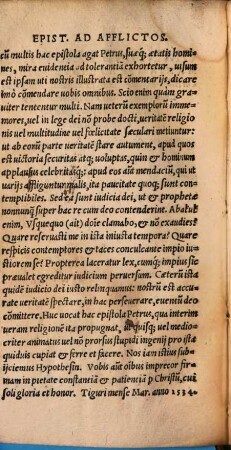 EPIST. AD AFFLICTOS.
cū multis hac epistola agat Petrus, suæq; ætatis homi-
nes, mira euidentia ad tolerantiā exhortetur, uisum
est ipsam uti nostris illustrata est cōmentarijs, dicare
imò cōmendare uobis omnibus. Scio enim quàm gra-
uiter tententur multi. Nam ueterū exemplorū imme-
mores, uel in deo nō probe docti, ueritatē religio
nis uel multitudine uel fœlicitate sæculari metiuntur:
ut ab eorū parte veritatē stare autument, apud quos
est uictoria securitas atq; uoluptas, quin & hominum
applausus celebritasq;: apud eos aūt mendaciū, qui ut
uarijs affligunturmalis, ita paucitate quoq; sunt con-
temptibiles. Sed ea sunt iudicia dei, ut & prophetæ
nonnunq̄ super hac re cum deo contenderint. Abatuk
enim, Vsquequo (ait) dñe clamabo, & nō exaudies?
Quare reseruasti me in ista iniusta tempora? Quare
respicis contemptores et taces conculcante impio iu-
stiorem se? Propterea lacerratur lex, cumq; impius sic
præualet egreditur iudicium peruersum. Cæterū ista
quidē iudicio dei iusto relinquamus: nostrū est accu-
rate veritatē spectare, in hac perseuerare, euentū deo
cōmittere. Huc uocat hac epistola Petrus, qua interim
ueram religionē ita propugnat, ut quisq; uel medio-
criter animatus uel nō prorsus stupidi ingenij pro ista
quiduis cupiat & ferre et facere. Nos iam istius sub-
ijciemus Hypothesin. Vobis aūt oībus imprecor fir-
mam in pietate constantiā & patientiā p Christū, cui
soli gloria et honor. Tiguri mense Mar. anno 1534.